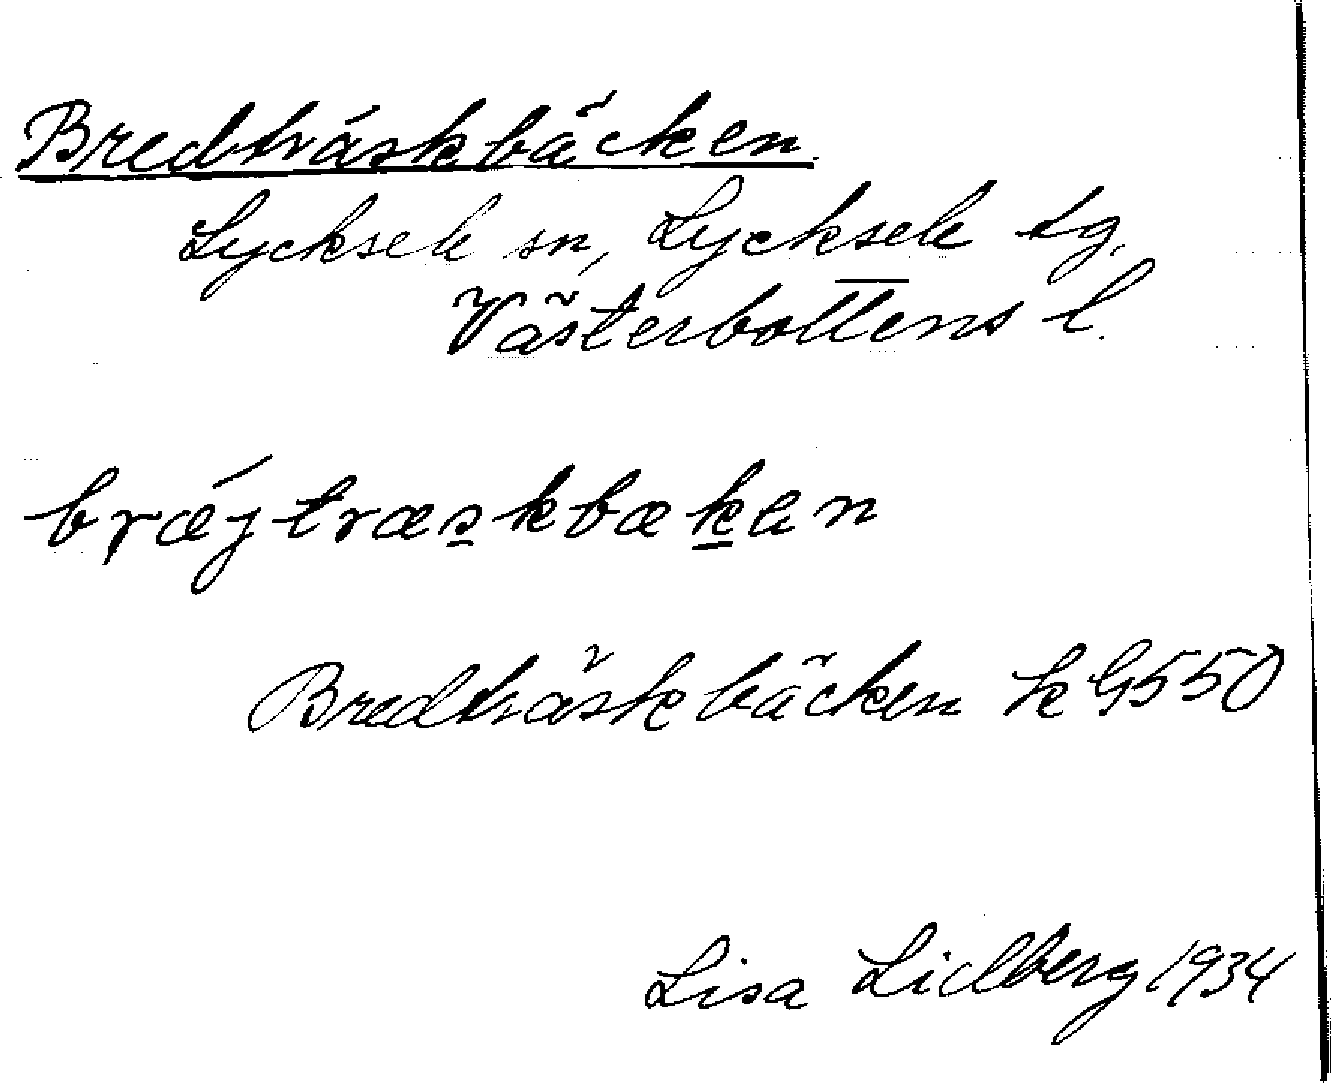 Bredträskbäcken
Lycksele sn, Lycksele tg,
Västerbottens l.
brǽjtræskbækən
Bredträskbäcken k G550
Lisa Lidberg 1934